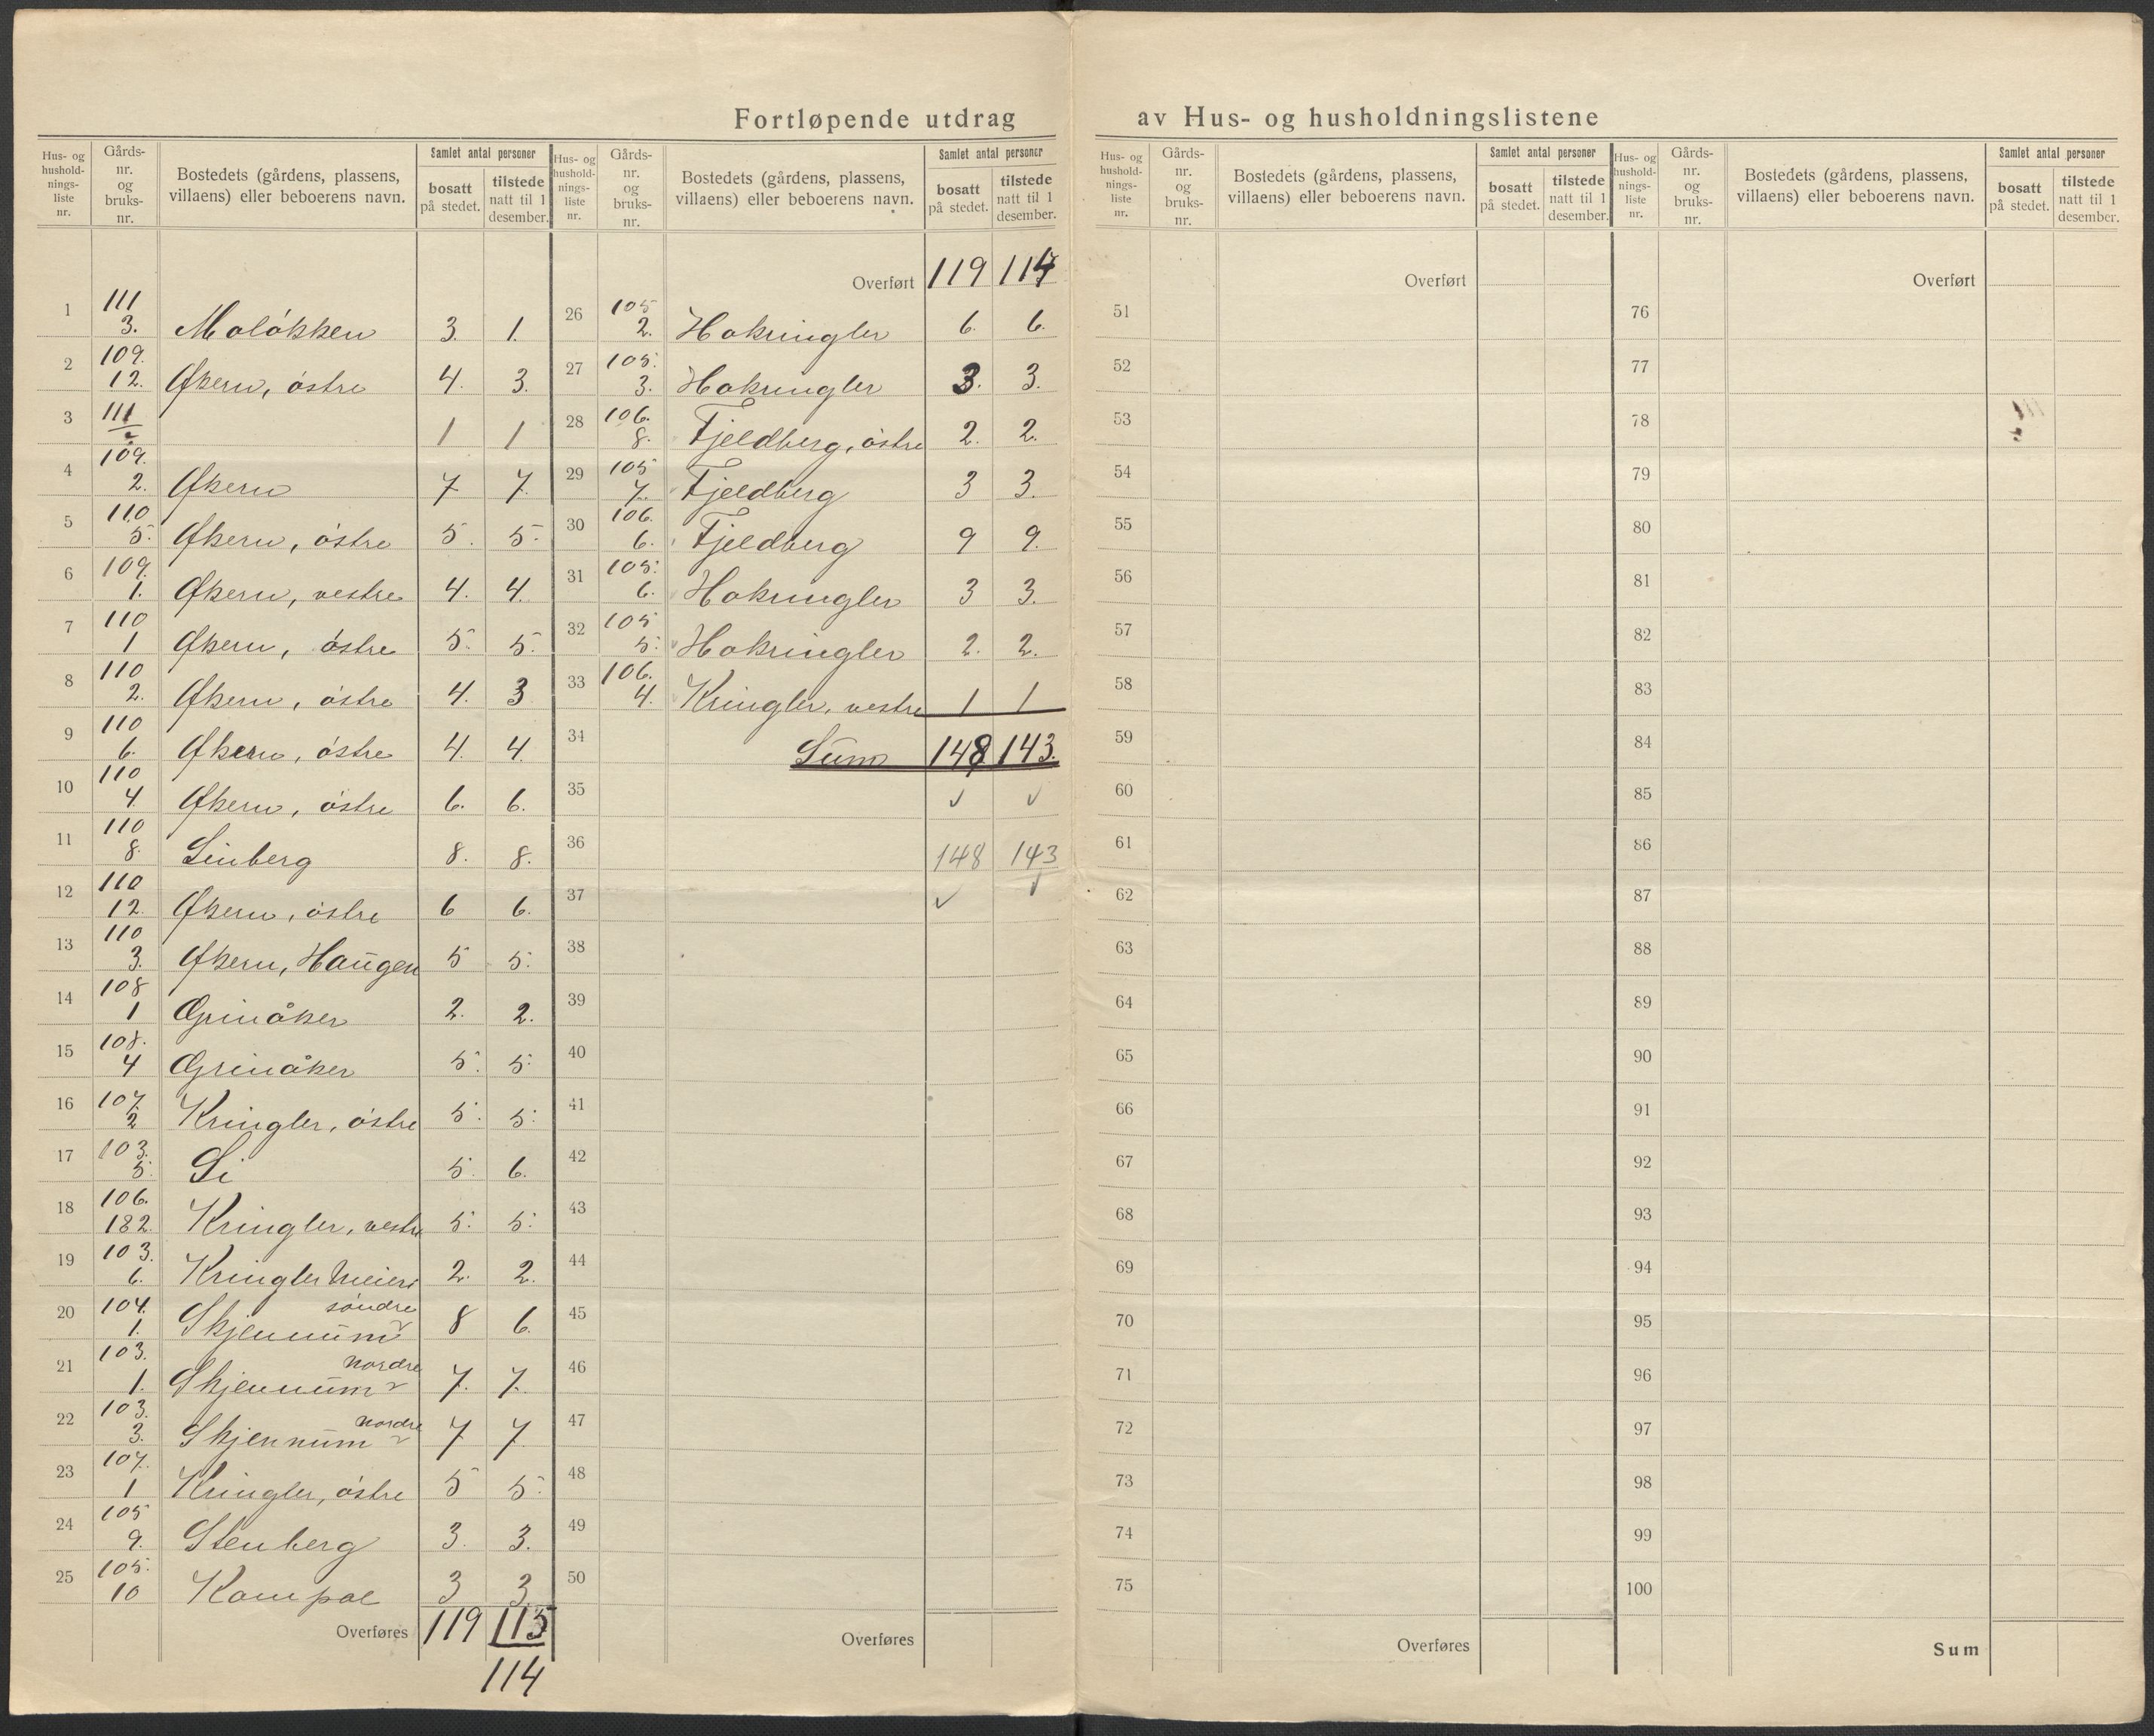 Fortløpende utdrag av Hus- og husholdningslistene
Hus- og hushold-nings-liste nr. Gårds-nr. og bruks-nr. Bostedets (gårdens, plassens, villaens) eller beboerens navn. Samlet antal personer bosatt på stedet. tilstede natt til 1 desember.
1 111 3. Moløkken 3. 1.
2 109. 12. Økern, østre 4. 3.
3 111 1 1
4 109. 2. Økern 7 7.
5 110 5. Økern, østre 5. 5.
6 109. 1. Økern, vestre 4. 4.
7 110 1 Økern, østre 5. 5.
8 110 2. Økern, østre 4. 3
9 110 6. Økern, østre 4. 4.
10 110 4. Økern, østre 6. 6.
11 110 8. Linberg 8. 8.
12 110 12. Økern, østre 6 6.
13 110 3. Økern, Haugen 5 5.
14 108 1 Grinåker 2. 2.
15 108. 4 Grinåker 5. 5.
16 107. 2 Kringler, østre 5. 5.
17 103. 5. Li 5. 6.
18 106. 182. Kringler, vestre 5. 5.
19 103. 6. Kringler Meieri 2. 2.
20 104. 1. Skjennum søndre 8 6.
21 103. 1. Skjennum nordre 7. 7.
22 103. 3. Skjennum nordre 7 7
23 107. 1 Kringler, østre 5 5.
24 105 9. Stenberg 3. 3.
25 105. 10 Kampae 3 3.
Overføres 119 113
114
Hus- og hushold-nings-liste nr. Gårds-nr. og bruks-nr. Bostedets (gårdens, plassens, villaens) eller beboerens navn. Samlet antal personer bosatt på stedet. tilstede natt til 1 desember.
Overført 119 114
26 105 2. Hakringler 6. 6.
27 105. 3. Hakringler 3. 3.
28 106. 8. Fjeldberg, østre 2. 2.
29 105 7. Fjeldberg 3 3.
30 106. 6. Fjeldberg 9 9.
31 105. 6. Hakringler 3 3.
32 105 5. Hakringler 2. 2.
33 106. 4. Kringler, vestre 1 1
34 Sum 148 143.
35
36 148 143
37
38
39
40
41
42
43
44
45
46
47
48
49
50
Overføres
Hus- og hushold-nings-liste nr. Gårds-nr. og bruks-nr. Bostedets (gårdens, plassens, villaens) eller beboerens navn. Samlet antal personer bosatt på stedet. tilstede natt til 1 desember.
Overført
51
52
53
54
55
56
57
58
59
60
61
62
63
64
65
66
67
68
69
70
71
72
73
74
75
Overføres
Hus- og hushold-nings-liste nr. Gårds-nr. og bruks-nr. Bostedets (gårdens, plassens, villaens) eller beboerens navn. Samlet antal personer bosatt på stedet. tilstede natt til 1 desember.
Overført
76
77
78
79
80
81
82
83
84
85
86
87
88
89
90
91
92
93
94
95
96
97
98
99
100
Sum